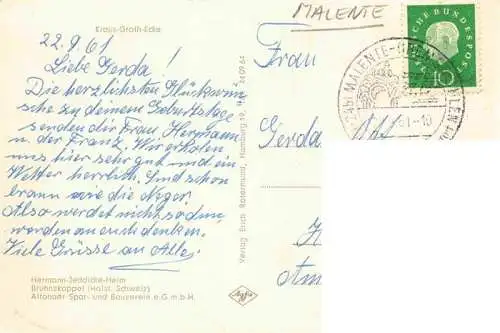 Klaus-Groth-Ecke
22.9.61
Liebe Gerda!
Die herzlichsten Glückwün
sche zu deinem Geburtstage
senden dir Frau Hermann
u. der Franz. Wir erholen
uns hier sehr gut und ein
Wetter herrlich. Sind schon
braun wie die Neger.
Also werdet nicht so dun,
werden an euch denken.
Viele Grüsse an Alle.
Hermann-Jeddicke-Heim
Bruhnskoppel (Holst. Schweiz)
Altonaer Spar- und Bauverein e.G.m.b.H.
Verlag Erich Rotermund, Hamburg 19,
Agfa
MALENTE
Frau
Gerda
DEUTSCHE BUNDESPOST
10
(24b) MALENTE-
61-10